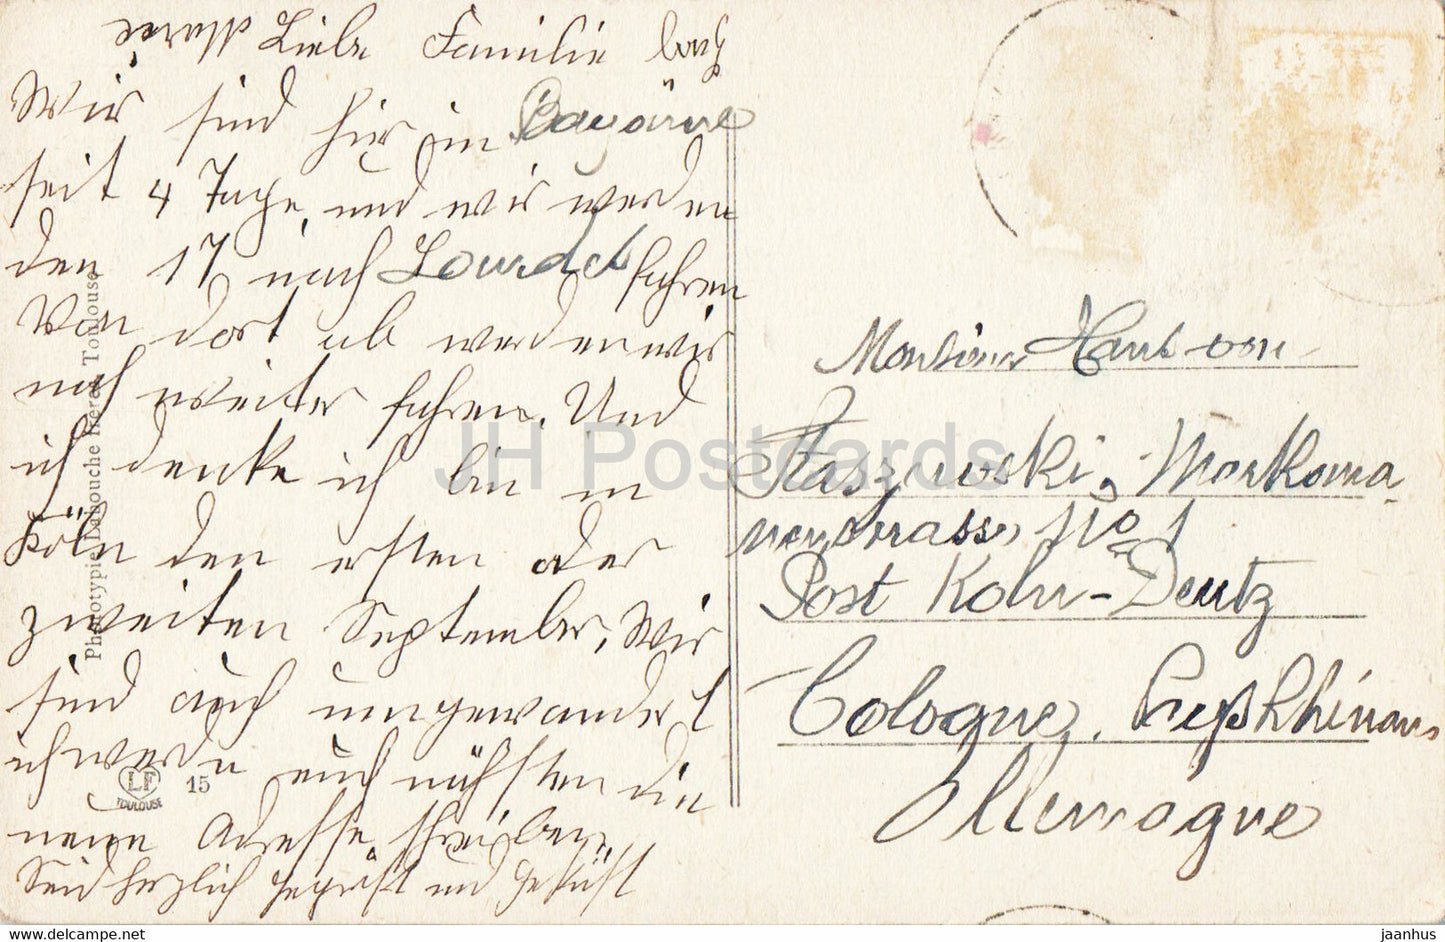 Liebe Familie
Wir sind hier in Bayonne
seit 4 Tage, und wir werden
den 17 nach Lourdes fahren
Von dort ab werden wir
noch weiter fahren. Und
ich denke ich bin in
Köln den ersten oder
zweiten September, Wir
sind auch umgewandert
ich werde euch nächsten die
neue Adresse schreiben.
Seid herzlich gegrüßt und geküßt
Marie
Phototypie Labouche frères Toulouse
LF
TOULOUSE
15
Monsieur
Staszewski, Markoma-
nenstrasse No 1
Post Koln-Deutz
Cologne,
Allemagne
JH Postcards
www.delcampe.net
jaanhus